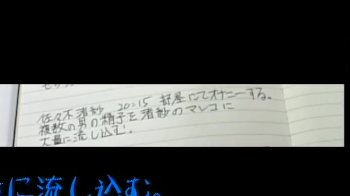 佐々木渚紗　20:15　部屋にてオナニーする。
複数の男の精子を渚紗のマンコに
大量に流し込む。
に流し込む。